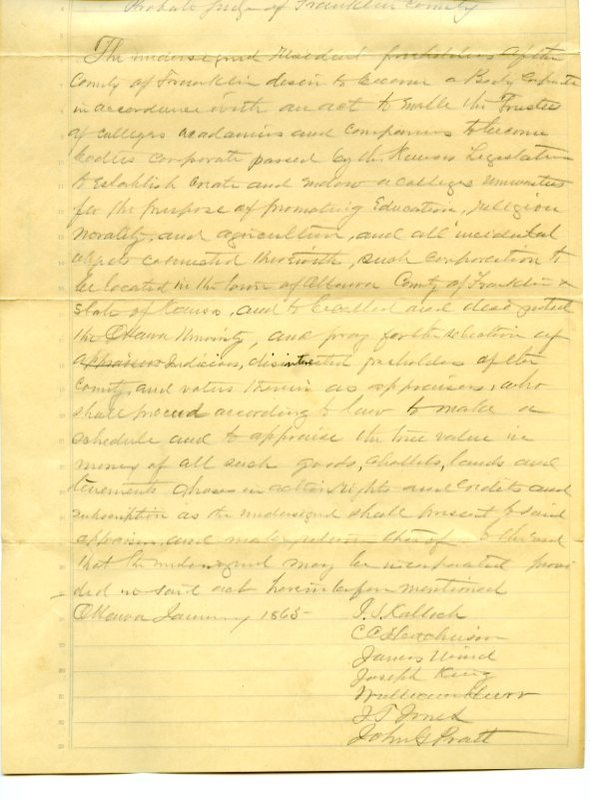 Probate Judge of Franklin County
The undersigned Resident freeholders of the
County of Franklin desire to become a Body Corporate
in accordance with an act to enable the Trustees
of colleges academies and companies to become
bodies corporate passed by the Kansas Legislature
to establish create and endow a college university
for the purpose of promoting Education, religion
morality, and agriculture, and all incidental
objects connected therewith, such corporation to
be located in the town of Ottawa County of Franklin &
State of Kansas, and to be called and designated
the Ottawa University, and pray for the selection of
appraisers Judicious, disinterested freeholders of the
County and voters therein as appraisers, who
shall proceed according to law to make a
schedule and to appraise the true value in
money of all such goods, chattels, lands and
tenements choses in action rights and credits and
subscription as the undersigned shall present to said
appraisers and make return thereof to the end
that the undersigned may be incorporated provi
ded in said act hereinbefore mentioned
Ottawa January 1865
I. S. Kalloch
C C Hutchinson
James Wind
Joseph King
William Hurr
J T Jones
John G Pratt